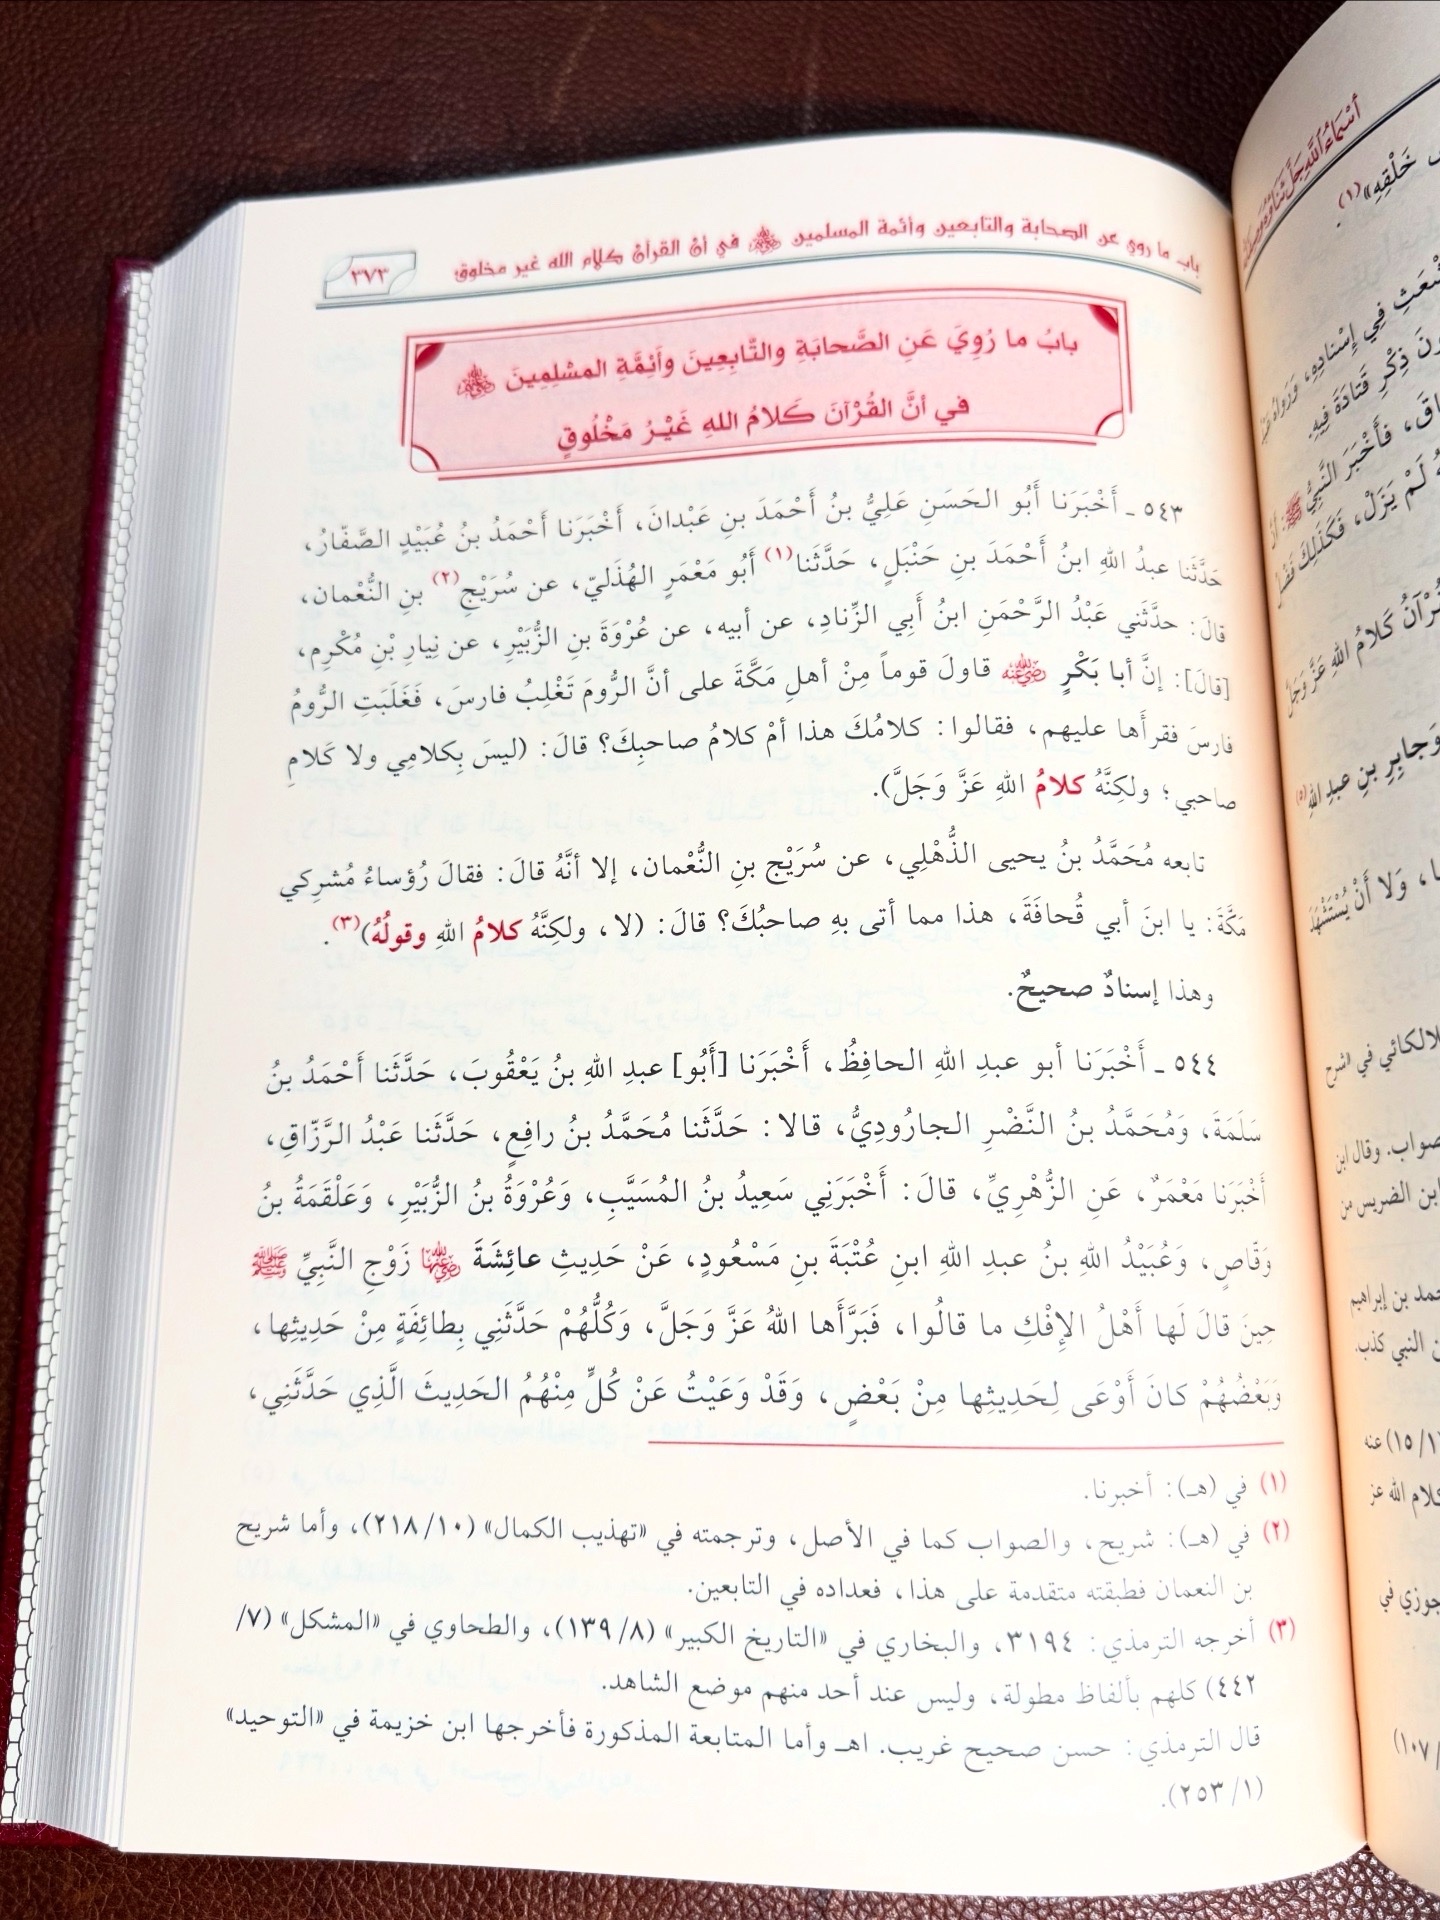 باب ما روي عن الصحابة والتابعين وأئمة المسلمين ﷺ في أن القرآن كلام الله غير مخلوق
٣٧٣
بابُ ما رُوِيَ عَنِ الصَّحابَةِ والتَّابِعِينَ وأَئِمَّةِ المسْلِمِينَ
في أنَّ القُرْآنَ كَلامُ اللهِ غَيْرُ مَخْلُوقٍ
٥٤٣ ـ أَخْبَرَنا أَبُو الحَسَنِ عَلِيُّ بنُ أَحْمَدَ بنِ عَبْدانَ، أَخْبَرَنا أَحْمَدُ بنُ عُبَيْدٍ الصَّفّارُ،
حَدَّثَنا عبدُ اللهِ ابنُ أَحْمَدَ بنِ حَنْبَلٍ، حَدَّثَنا(١) أَبُو مَعْمَرٍ الهُذَليّ، عن سُرَيْجِ(٢) بنِ النُّعْمان،
قالَ: حدَّثَني عَبْدُ الرَّحْمَنِ ابنُ أَبِي الزِّنادِ، عن أبيه، عن عُرْوَةَ بنِ الزُّبَيْرِ، عن نِيارِ بْنِ مُكْرِم،
[قالَ]: إنَّ أبا بَكْرٍ رضي الله عنه قاولَ قوماً مِنْ أهلِ مَكَّةَ على أنَّ الرُّومَ تَغْلِبُ فارسَ، فَغَلَبَتِ الرُّومُ
فارسَ فقرأَها عليهم، فقالوا: كلامُكَ هذا أمْ كلامُ صاحبِكَ؟ قالَ: (ليسَ بِكلامِي ولا كَلامِ
صاحبي؛ ولكِنَّهُ كلامُ اللهِ عَزَّ وَجَلَّ).
تابعه مُحَمَّدُ بنُ يحيى الذُّهْلِي، عن سُرَيْج بنِ النُّعْمان، إلا أنَّهُ قالَ: فقالَ رُؤساءُ مُشركِي
مَكَّةَ: يا ابنَ أبي قُحافَةَ، هذا مما أتى بهِ صاحبُكَ؟ قالَ: (لا، ولكِنَّهُ كلامُ اللهِ وقولُهُ)(٣).
وهذا إسنادٌ صحيحٌ.
٥٤٤ ـ أَخْبَرَنا أبو عبدِ اللهِ الحافِظُ، أَخْبَرَنا [أَبُو] عبدِ اللهِ بنُ يَعْقُوبَ، حَدَّثَنا أَحْمَدُ بنُ
سَلَمَةَ، وَمُحَمَّدُ بنُ النَّضْرِ الجارُودِيُّ، قالا: حَدَّثَنا مُحَمَّدُ بنُ رافِعٍ، حَدَّثَنا عَبْدُ الرَّزّاقِ،
أَخْبَرَنا مَعْمَرٌ، عَنِ الزُّهْرِيِّ، قالَ: أَخْبَرَنِي سَعِيدُ بنُ المُسَيَّبِ، وَعُرْوَةُ بنُ الزُّبَيْرِ، وَعَلْقَمَةُ بنُ
وَقّاصٍ، وَعُبَيْدُ اللهِ بنُ عبدِ اللهِ ابنِ عُتْبَةَ بنِ مَسْعُودٍ، عَنْ حَدِيثِ عائِشَةَ رضي الله عنها زَوْجِ النَّبِيِّ ﷺ
حِينَ قالَ لَها أَهْلُ الإِفْكِ ما قالُوا، فَبَرَّأَها اللهُ عَزَّ وَجَلَّ، وَكُلُّهُمْ حَدَّثَنِي بِطائِفَةٍ مِنْ حَدِيثِها،
وَبَعْضُهُمْ كانَ أَوْعَى لِحَدِيثِها مِنْ بَعْضٍ، وَقَدْ وَعَيْتُ عَنْ كُلٍّ مِنْهُمُ الحَدِيثَ الَّذِي حَدَّثَنِي،
(١) في (هـ): أخبرنا.
(٢) في (هـ): شريح، والصواب كما في الأصل، وترجمته في «تهذيب الكمال» (١٠/ ٢١٨)، وأما شريح
بن النعمان فطبقته متقدمة على هذا، فعداده في التابعين.
(٣) أخرجه الترمذي: ٣١٩٤، والبخاري في «التاريخ الكبير» (٨/ ١٣٩)، والطحاوي في «المشكل» (٧/
٤٤٢) كلهم بألفاظ مطولة، وليس عند أحد منهم موضع الشاهد.
قال الترمذي: حسن صحيح غريب. اهـ وأما المتابعة المذكورة فأخرجها ابن خزيمة في «التوحيد»
(١/ ٢٥٣).